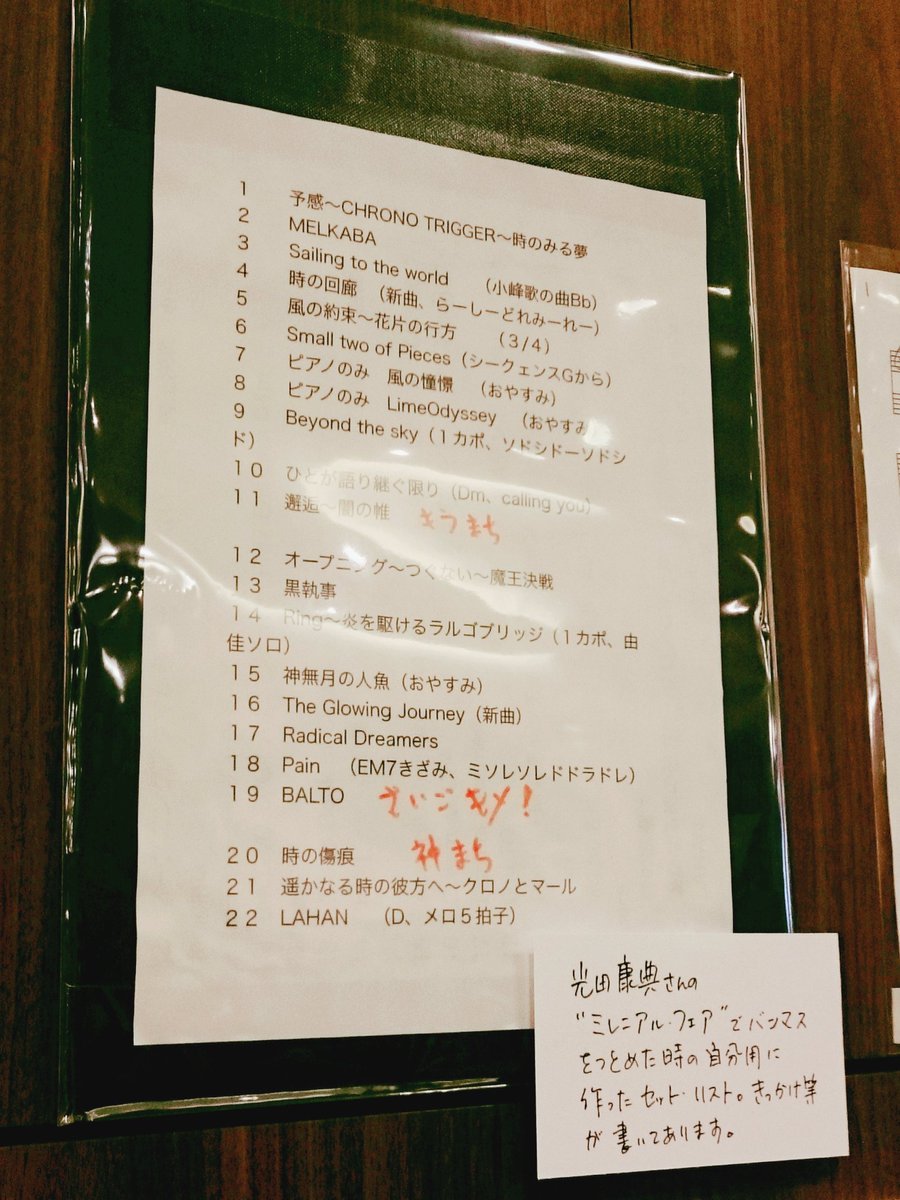 1 予感〜CHRONO TRIGGER〜時のみる夢
2 MELKABA
3 Sailing to the world (小峰歌の曲Bb)
4 時の回廊 (新曲、らーしーどれみーれー)
5 風の約束〜花片の行方 (3/4)
6 Small two of Pieces (シークェンスGから)
7 ピアノのみ 風の憧憬 (おやすみ)
8 ピアノのみ LimeOdyssey (おやすみ
9 Beyond the sky (1カポ、ソドシドーソドシ
ド)
10 ひとが語り継ぐ限り (Dm、calling you)
11 邂逅〜闇の帷 まち
12 オープニング〜つぐない〜魔王決戦
13 黒執事
14 Ring〜炎を駆けるラルゴブリッジ (1カポ、由
佳ソロ)
15 神無月の人魚 (おやすみ)
16 The Glowing Journey (新曲)
17 Radical Dreamers
18 Pain (EM7きざみ、ミソレソレドドラドレ)
19 BALTO さいご キメ!
20 時の傷痕 神まち
21 遥かなる時の彼方へ〜クロノとマール
22 LAHAN (D、メロ5拍子)
光田康典さんの
"ミレニアル・フェア"でバンマス
をつとめた時の自分用に
作ったセット・リスト。きっかけ等
が書いてあります。